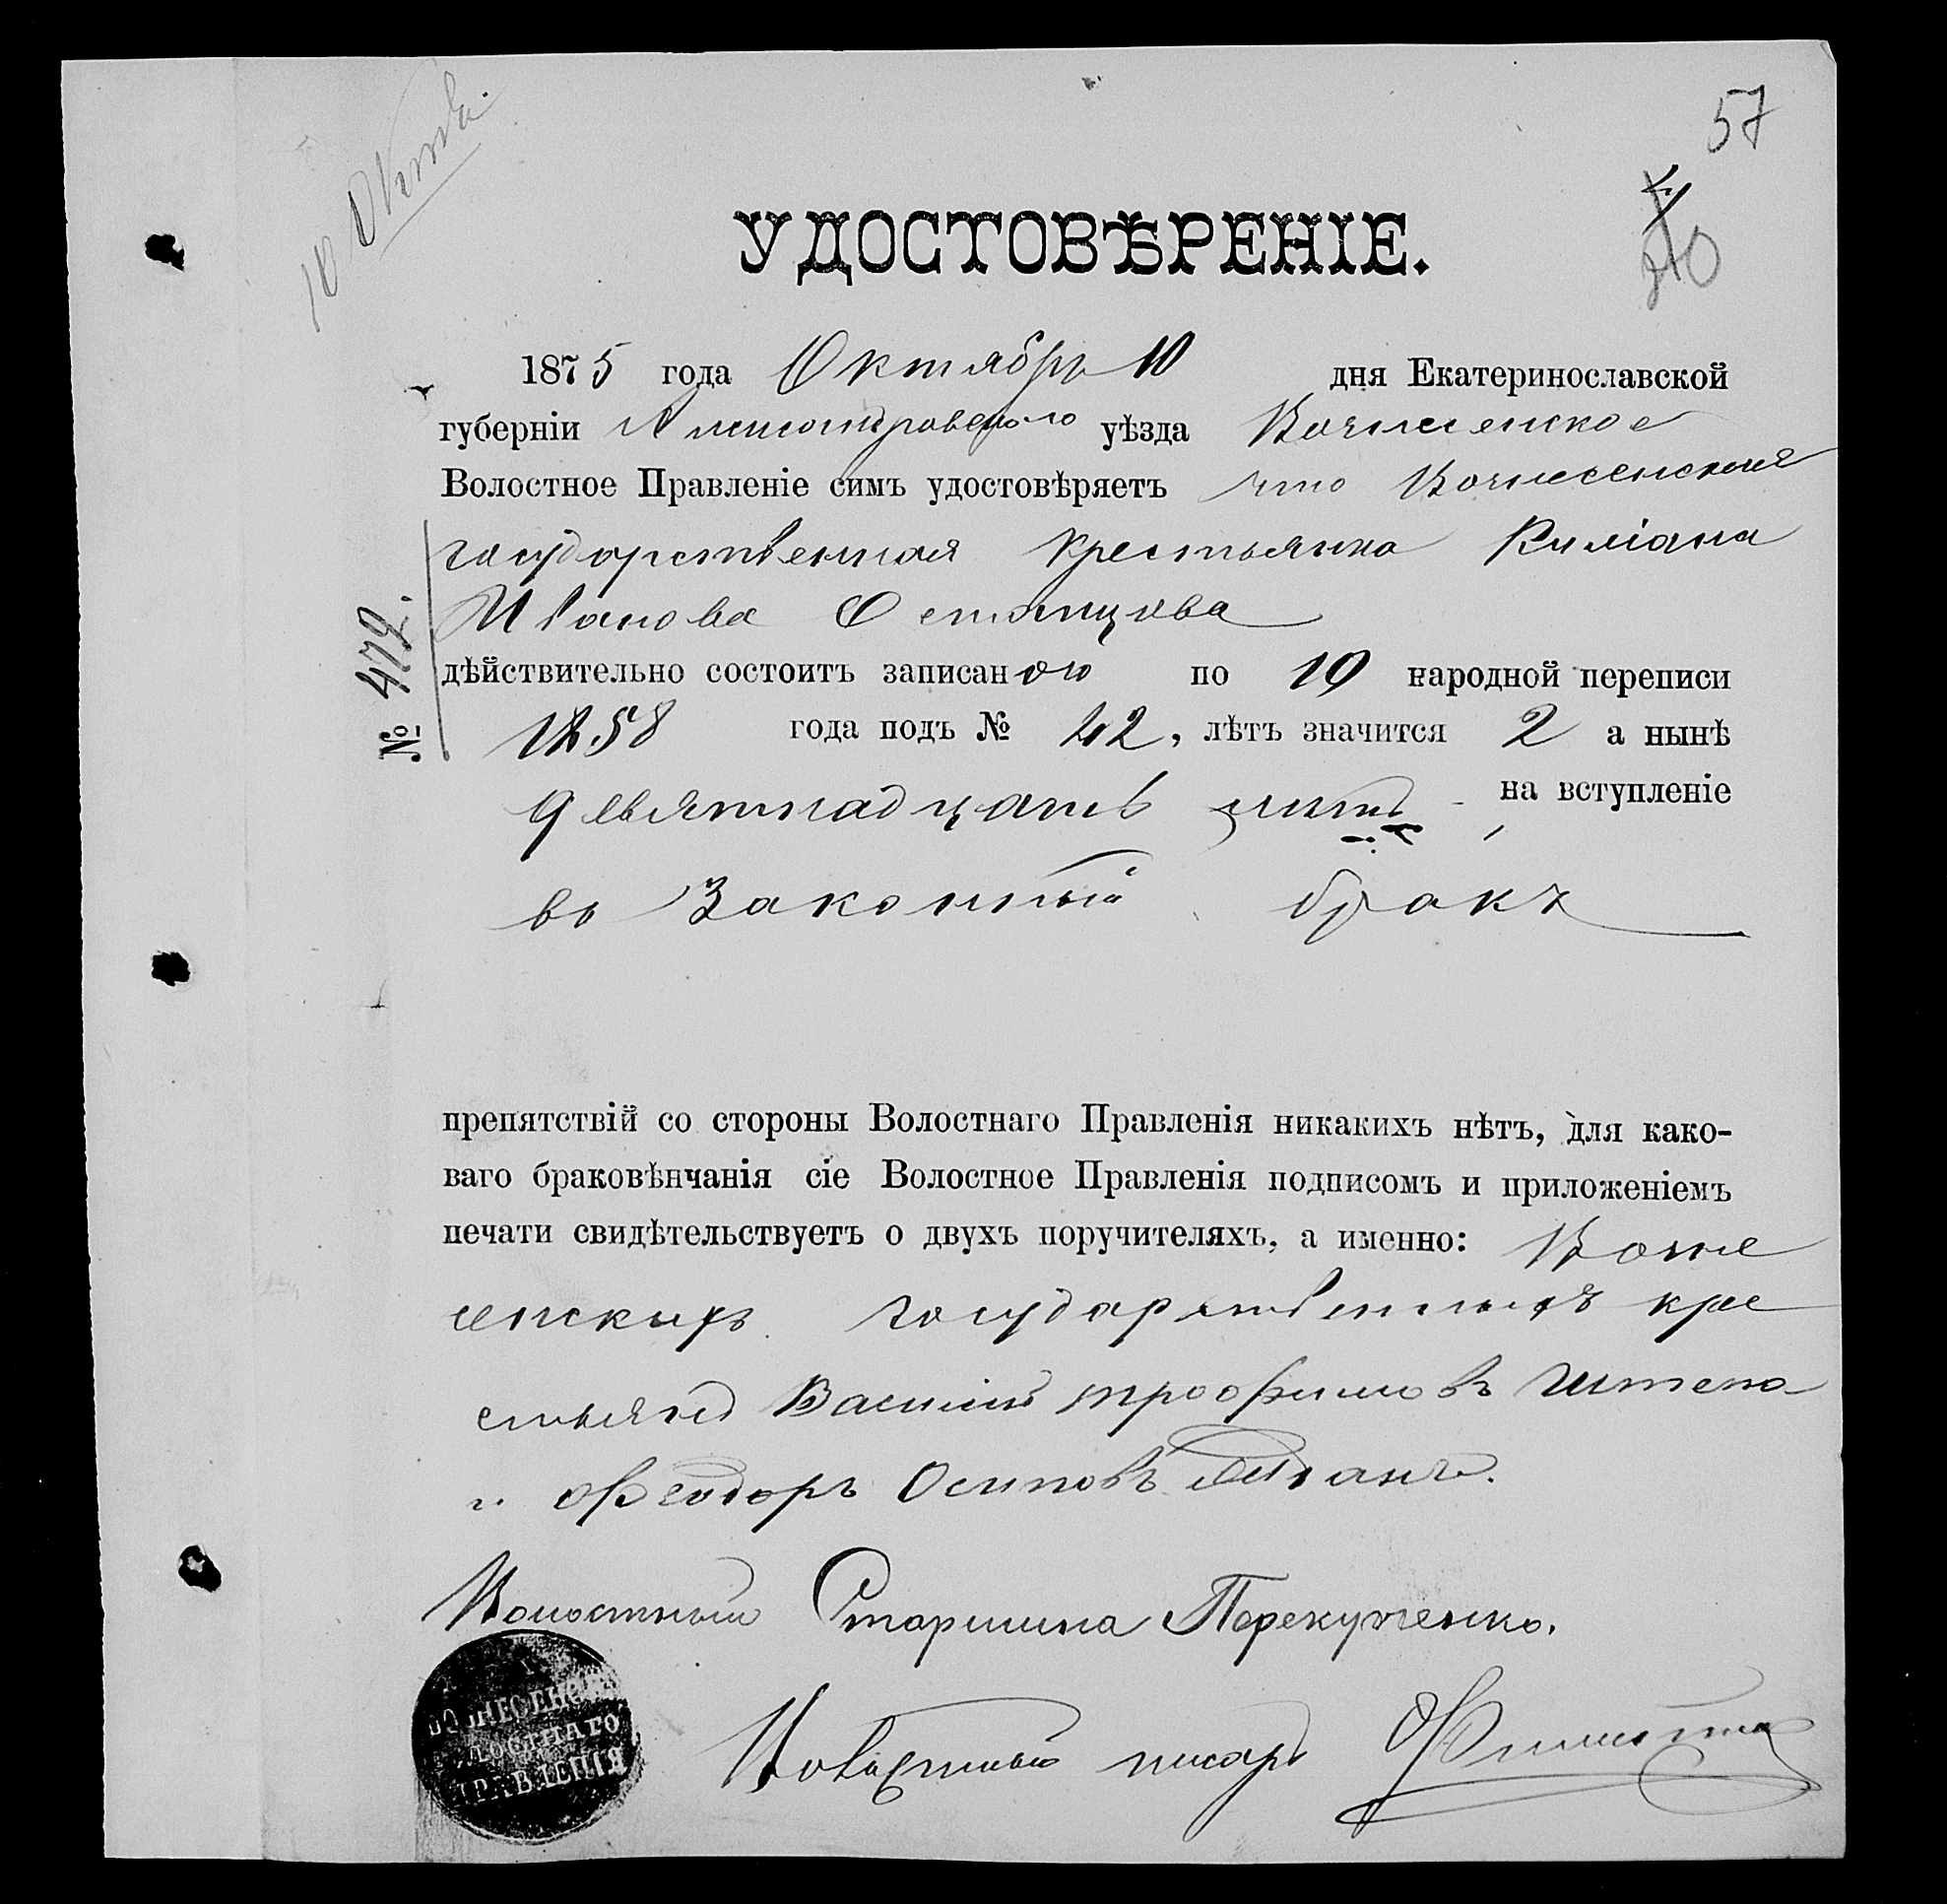 10 Октяб.
57
40
УДОСТОВѢРЕНІЕ.
1875 года Октябрь 10 дня Екатеринославской
губерніи Александровского уѣзда Вознесенское
Волостное Правленіе симъ удостовѣряетъ что Вознесенская
государственная крестьянка
Иванова
№ 479.
дѣйствительно состоитъ записаною по 10 народной переписи
1858 года подъ № 42, лѣтъ значится 2 а нынѣ
девятнадцать лѣтъ на вступленіе
въ Законный бракъ
препятствій со стороны Волостнаго Правленія никакихъ нѣтъ, для како-
ваго браковѣнчанія сіе Волостное Правленія подписомъ и приложеніемъ
печати свидѣтельствуетъ о двухъ поручителяхъ, а именно: Возне
сенскихъ государственныхъ кре
стьянъ Василій Трофимовъ Штепа
и Феодоръ Осиповъ
Волостный Старшина
Волостный писарь
ВОЗНЕСЕНСКАГО
ВОЛОСТНАГО
ПРАВЛЕНІЯ